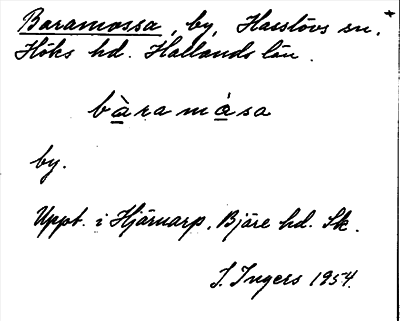 Baramossa, by, Hasslövs sn.
Höks hd. Hallands län.
bàramåsa
by.
Uppt. i Hjärnarp, Bjäre hd. Sk.
I. Ingers 1954.